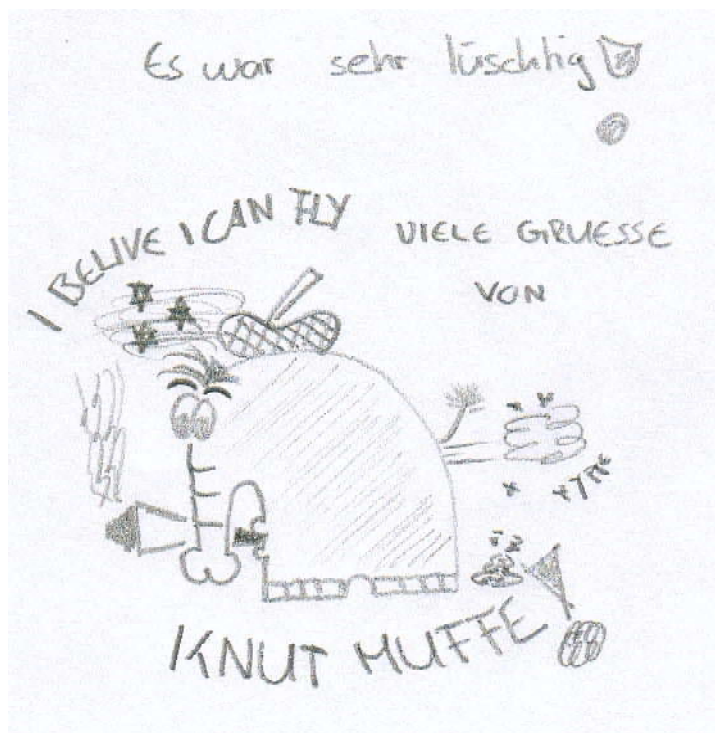 Es war sehr lüschtig
I BELIVE I CAN FLY
VIELE GRUESSE
VON
KNUT MUFFE